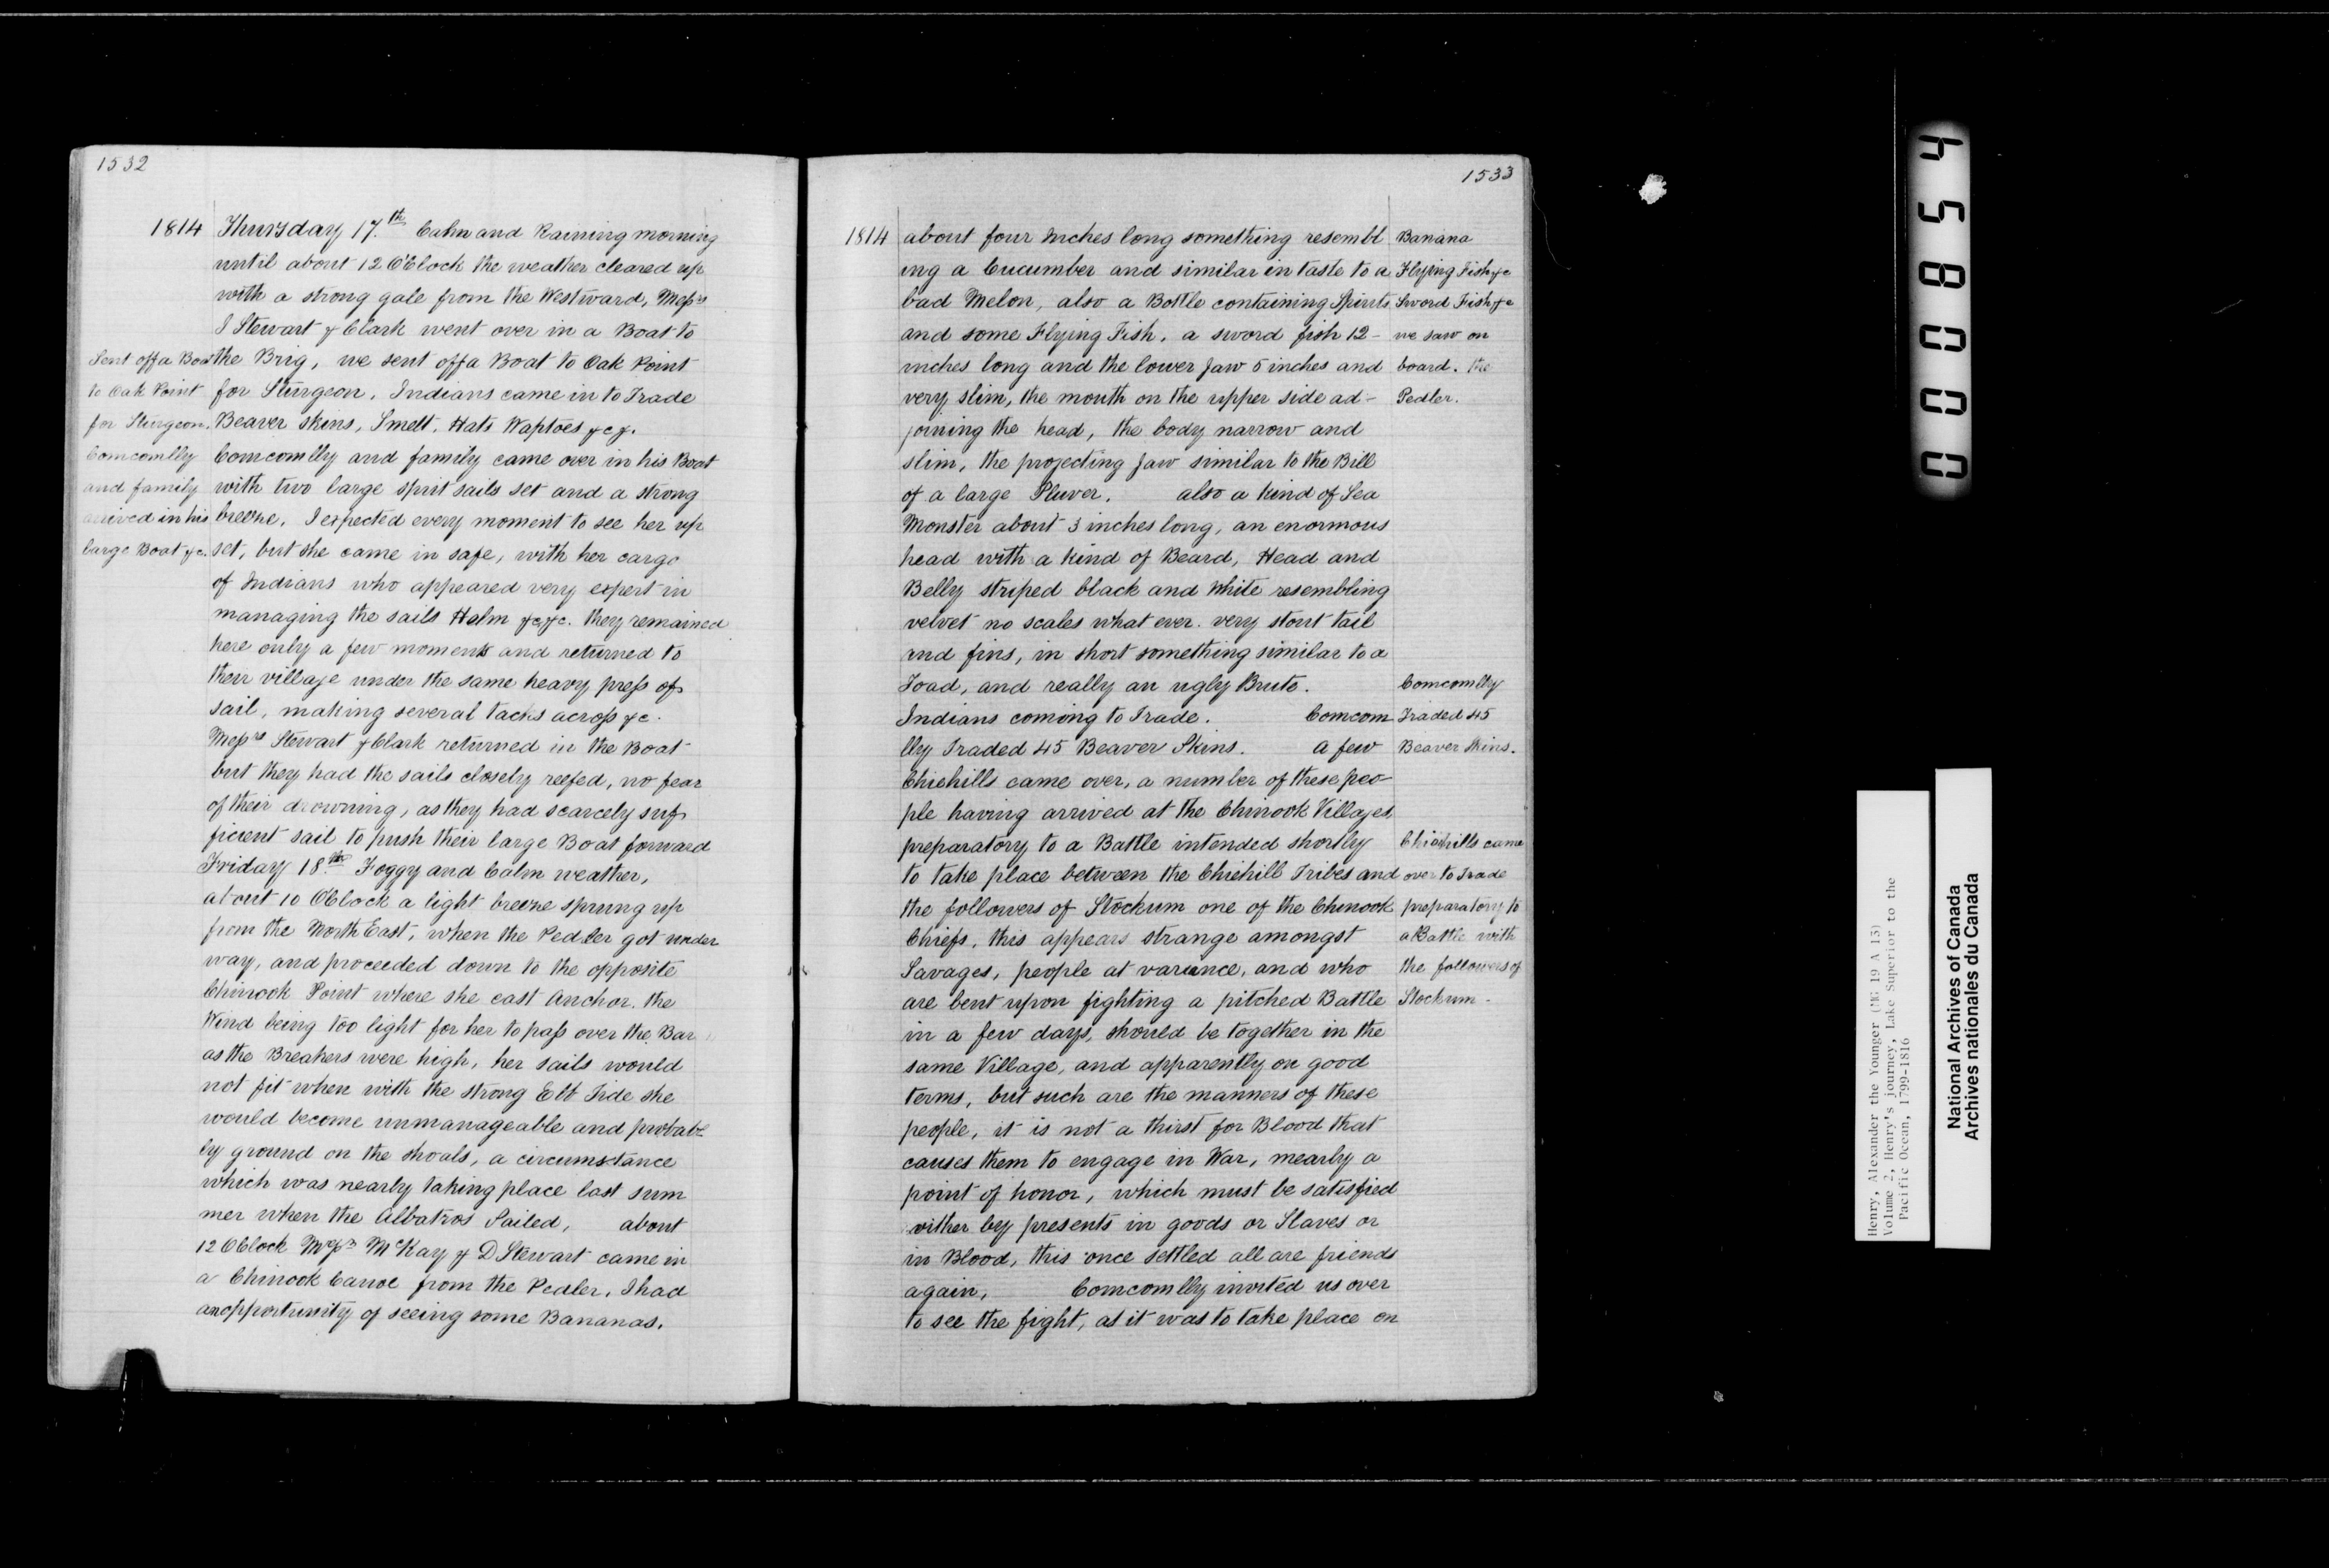 1532
1814 Thursday 17.th Calm and Raining morning
until about 12 O'Clock the weather cleared up
with a strong gale from the Westward, Messrs
J Stewart & Clark went over in a Boat to
the Brig, we sent off a Boat to Oak Point
for Sturgeon. Indians came in to Trade
Beaver Skins, Smelt. Hats Waptoes &c &.
Comcomlly and family came over in his Boat
with two large sprit sails set and a strong
breeze. I expected every moment to see her up
set, but she came in safe, with her cargo
of Indians who appeared very expert in
managing the sails Helm &c &c. they remained
here only a few moments and returned to
their village under the same heavy press of
sail, making several tacks across &c.
Messrs Stewart & Clark returned in the Boat
but they had the sails closely reefed, no fear
of their drowning, as they had scarcely suf
ficient sail to push their large Boat forward
Friday 18.th Foggy and Calm weather,
about 10 O'Clock a light breeze sprung up
from the North East, when the Pedler got under
way, and proceeded down to the opposite
Chinook Point where she cast Anchor. the
Wind being too light for her to pass over the Bar
as the Breakers were high, her sails would
not fit when with the strong Ebb Tide she
would become unmanageable and probab
ly ground on the shoals, a circumstance
which was nearly taking place last sum
mer when the Albatros Sailed, about
12 OClock Messrs McKay & D Stewart came in
a Chinook Canoe from the Pedler. I had
an opportunity of seeing some Bananas.
Sent off a Boat
to Oak Point
for Sturgeon.
Comcomlly
and family
arrived in his
large Boat &c.
1533
1814 about four Inches long something resembl
ing a Cucumber and similar in taste to a
bad Melon, also a Bottle containing Spirits
and some Flying Fish. a sword fish 12-
inches long and the lower Jaw 5 inches and
very slim, the mouth on the upper side ad-
joining the head, the body narrow and
slim, the projecting Jaw similar to the Bill
of a large Pluver. also a kind of Sea
Monster about 3 inches long, an enormous
head with a kind of Beard, Head and
Belly striped black and White resembling
velvet no scales what ever. very stout tail
and fins, in short something similar to a
Toad, and really an ugly Brute.
Indians coming to Trade. Comcom
lly Traded 45 Beaver Skins. A few
Chiehills came over, a number of these peo-
ple having arrived at the Chinook Villages
preparatory to a Battle intended shortly
to take place between the Chiehill Tribes and
the followers of Stockum one of the Chinook
Chiefs, this appears strange amongst
Savages, people at variance, and who
are bent upon fighting a pitched Battle
in a few days, should be together in the
same Village, and apparently on good
terms, but such are the manners of these
people, it is not a thirst for Blood that
causes them to engage in War, mearly a
point of honor, which must be satisfied
either by presents in goods or Slaves or
in Blood, this once settled all are friends
again, Comcomlly invited us over
to see the fight, as it was to take place on
Banana
Flying Fish &c
Sword Fish &c
we saw on
board. the
Pedler.
Comcomlly
Traded 45
Beaver Skins.
Chiehills came
over to Trade
preparatory to
a Battle with
the followers of
Stockum -
000854
Henry, Alexander the Younger (MG 19 A 13)
Volume 2, Henry's journey, Lake Superior to the
Pacific Ocean, 1799-1816
National Archives of Canada
Archives nationales du Canada